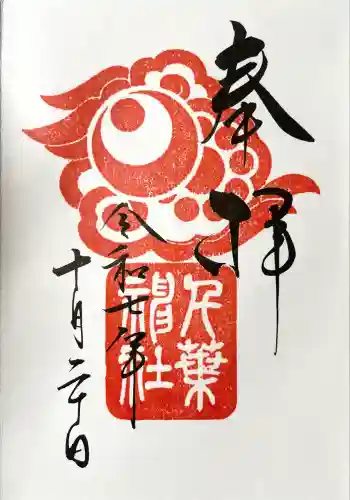 奉拝
令和七年
十月二十日
片葉
神社